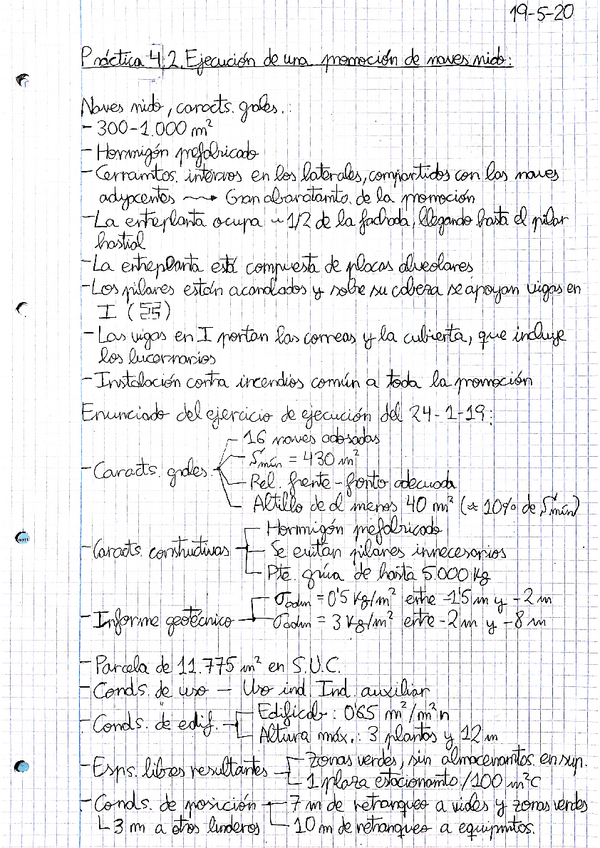 19-5-20
Práctica 4.2. Ejecución de una promoción de naves nido:
Naves nido, caracts. grales.:
- 300-1.000 m²
- Hormigón prefabricado
- Cerramtos. internos en los laterales, compartidos con las naves
adyacentes ⟿ Gran abaratamto. de la promoción
- La entreplanta ocupa ~ 1/2 de la fachada, llegando hasta el pilar
hastial
- La entreplanta está compuesta de placas alveolares
- Los pilares están acanalados y sobre su cabeza se apoyan vigas en
I ( )
- Las vigas en I portan las correas y la cubierta, que incluye
los lucernarios
- Instalación contra incendios común a toda la promoción
Enunciado del ejercicio de ejecución del 24-1-19:
- Caracts. grales.
16 naves adosadas
Smín = 430 m²
Rel. frente-fonto adecuada
Altillo de al menos 40 m² (≈ 10% de Smín)
- Caracts. constructivas
Hormigón prefabricado
Se evitan pilares innecesarios
Pte. grúa de hasta 5.000 kg
- Informe geotécnico
σadm = 0'5 kg/m² entre -1'5 m y -2 m
σadm = 3 kg/m² entre -2 m y -8 m
- Parcela de 11.775 m² en S.U.C.
- Conds. de uso - Uso ind. Ind. auxiliar
- Conds. de edif.
Edificab: 0'65 m²/m²n
Altura máx.: 3 plantas y 12 m
- Esps. libres resultantes
Zonas verdes, sin almacenamtos. en sup.
1 plaza estacionamto/100 m²C
- Conds. de posición
7 m de retranqueo a viales y zonas verdes
3 m a otros linderos
10 m de retranqueo a equipmtos.